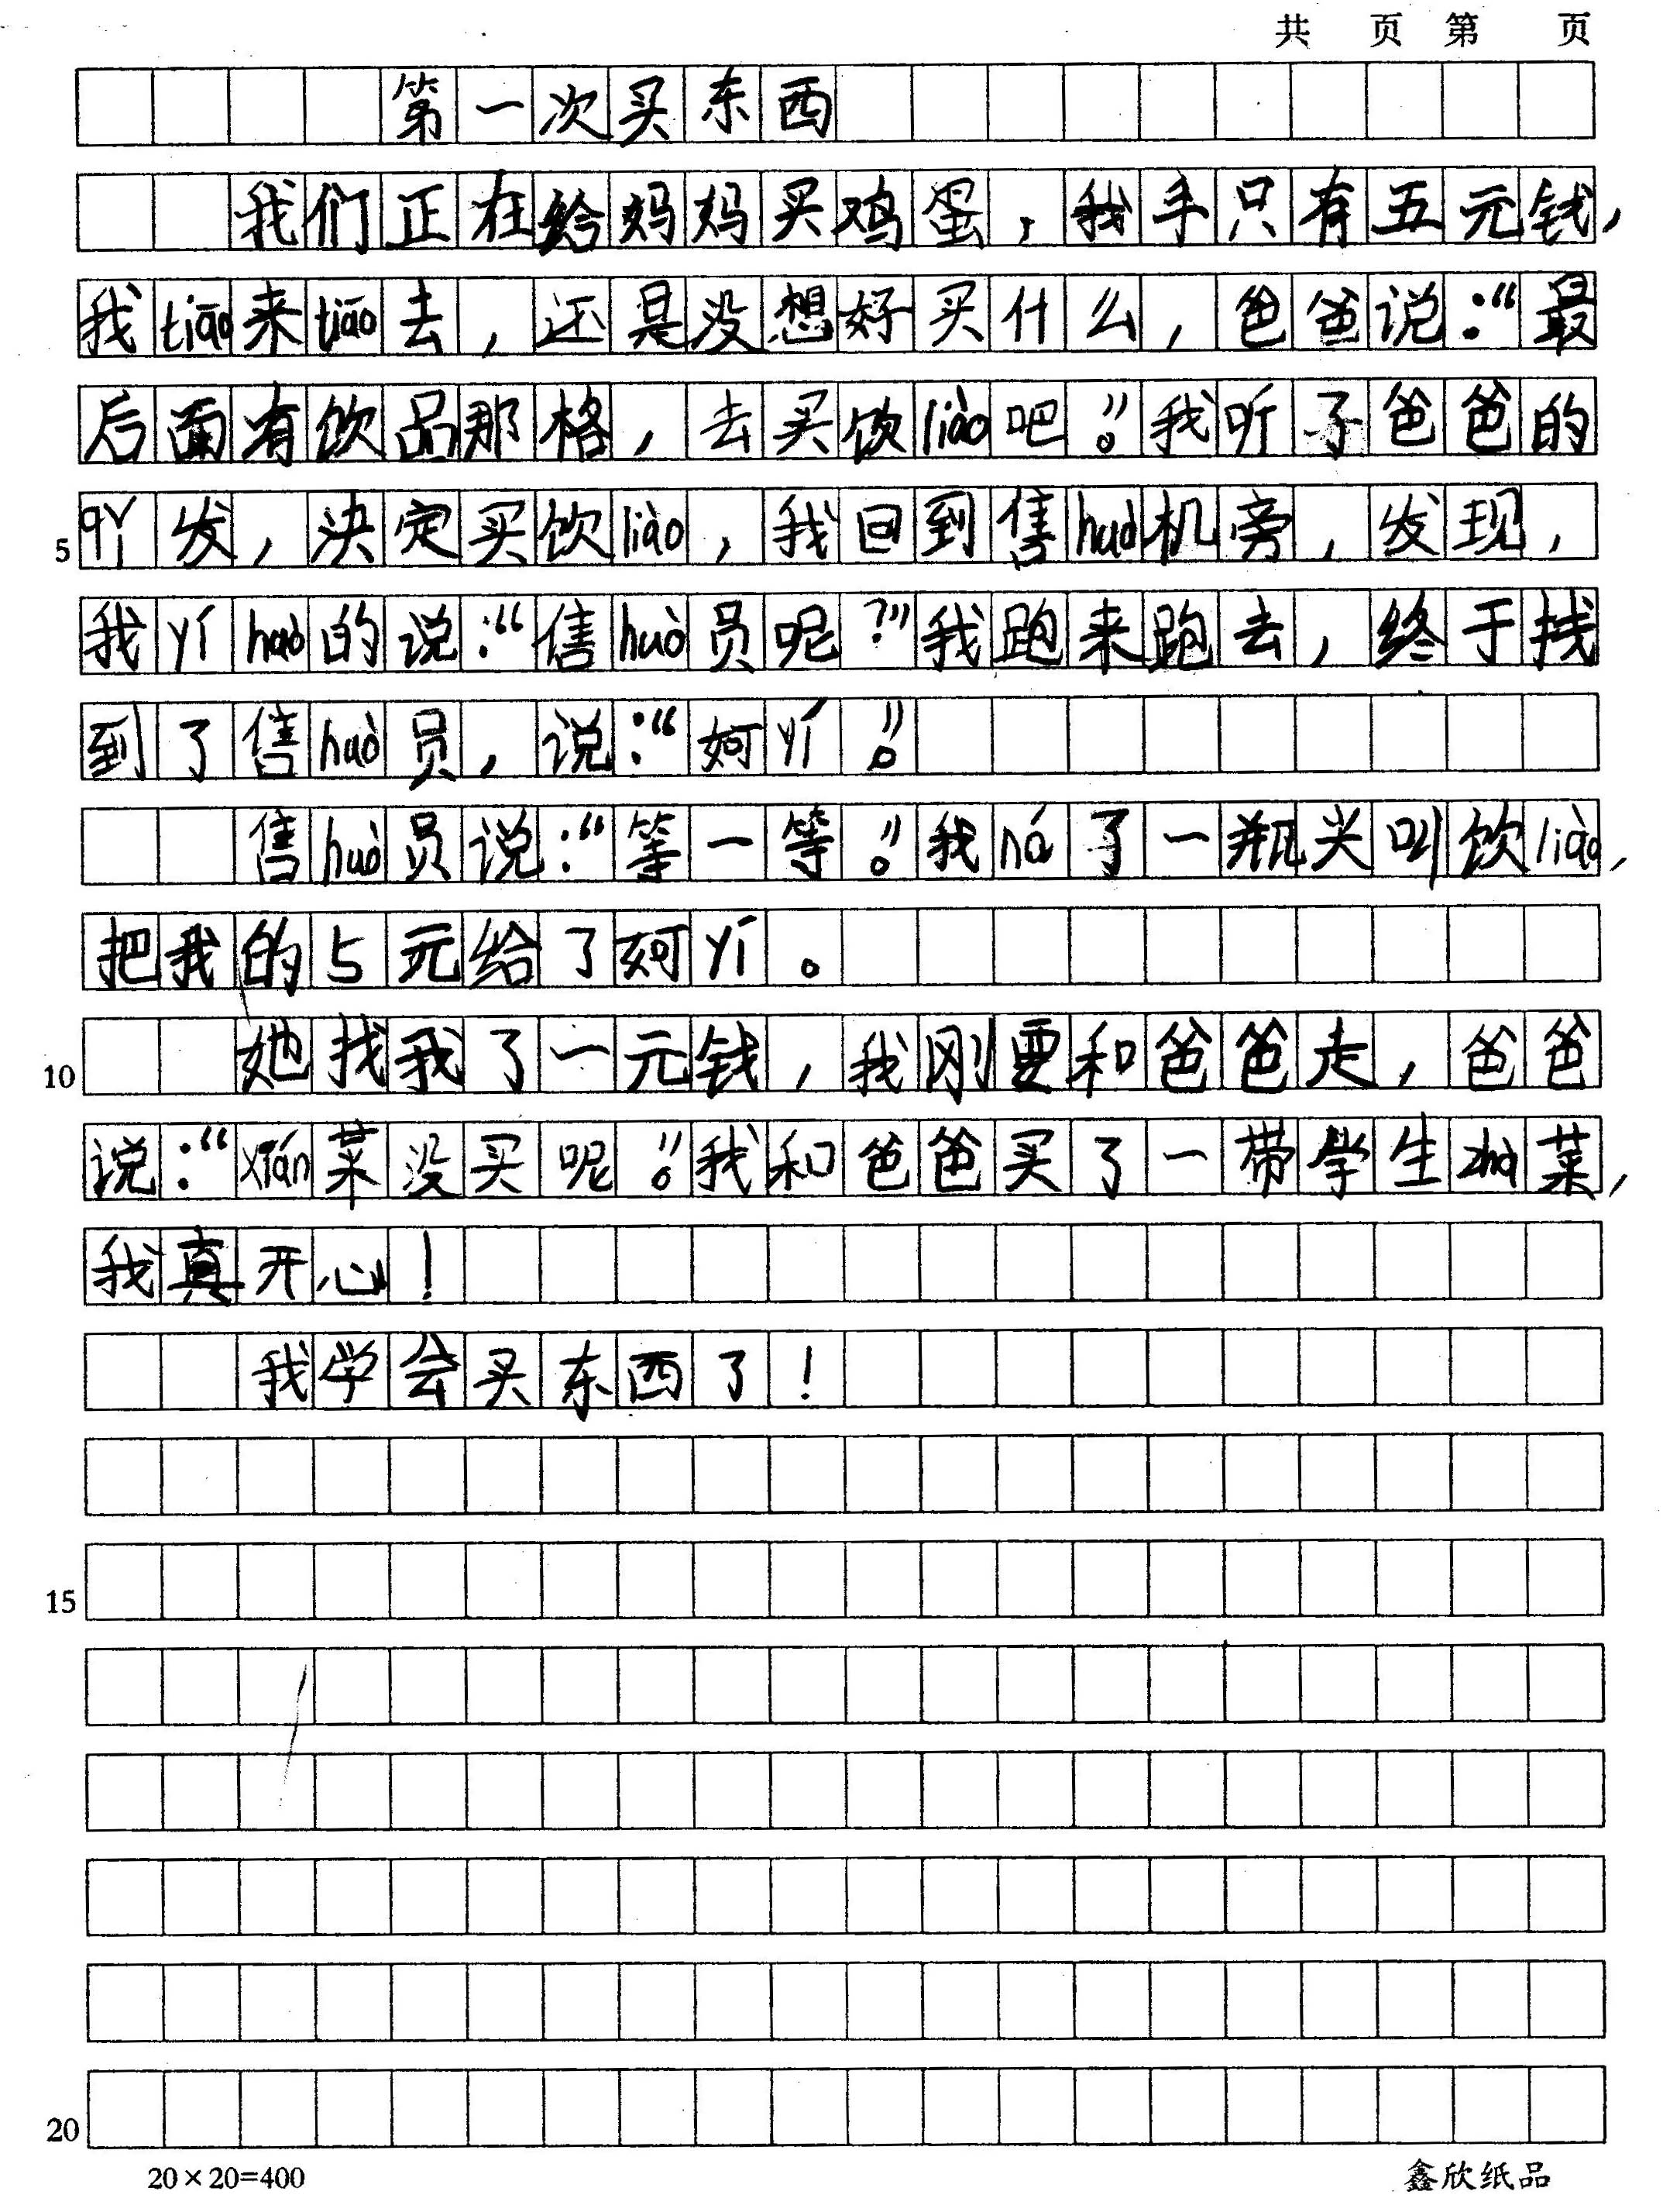 共 页 第 页
第一次买东西
我们正在给妈妈买鸡蛋，我手只有五元钱，
我tiāo来tiāo去，还是没想好买什么，爸爸说：“最
后面有饮品那格，去买饮liào吧。”我听了爸爸的
发，决定买饮liào，我回到售huò机旁，发现，
我yí huò的说：“售huò员呢？”我跑来跑去，终于找
到了售huò员，说：“婀yí。”
售huò员说：“等一等。”我ná了一瓶尖叫饮liào，
把我的5元给了婀yí。
她找我了一元钱，我刚要和爸爸走，爸爸
说：“xián菜没买呢。”我和爸爸买了一带学生zhà菜，
我真开心！
我学会买东西了！
5
10
15
20
20×20=400
鑫欣纸品